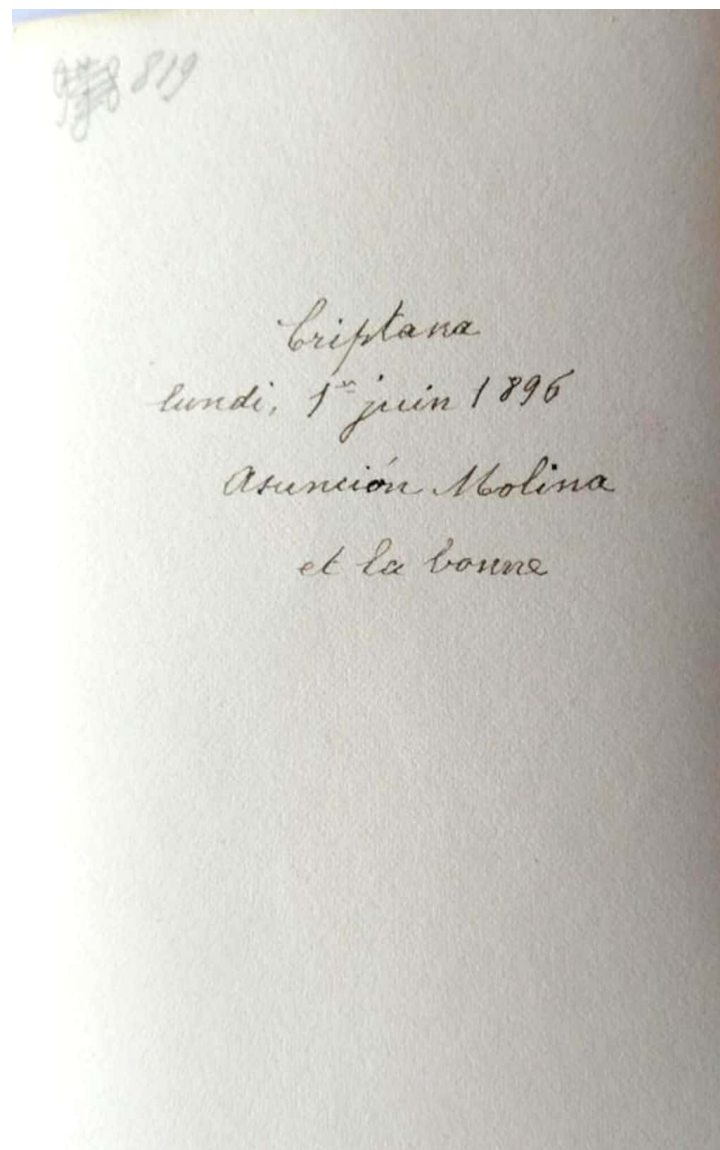 819
Criptana
lundi, 1er juin 1896
Asunción Molina
et la bonne